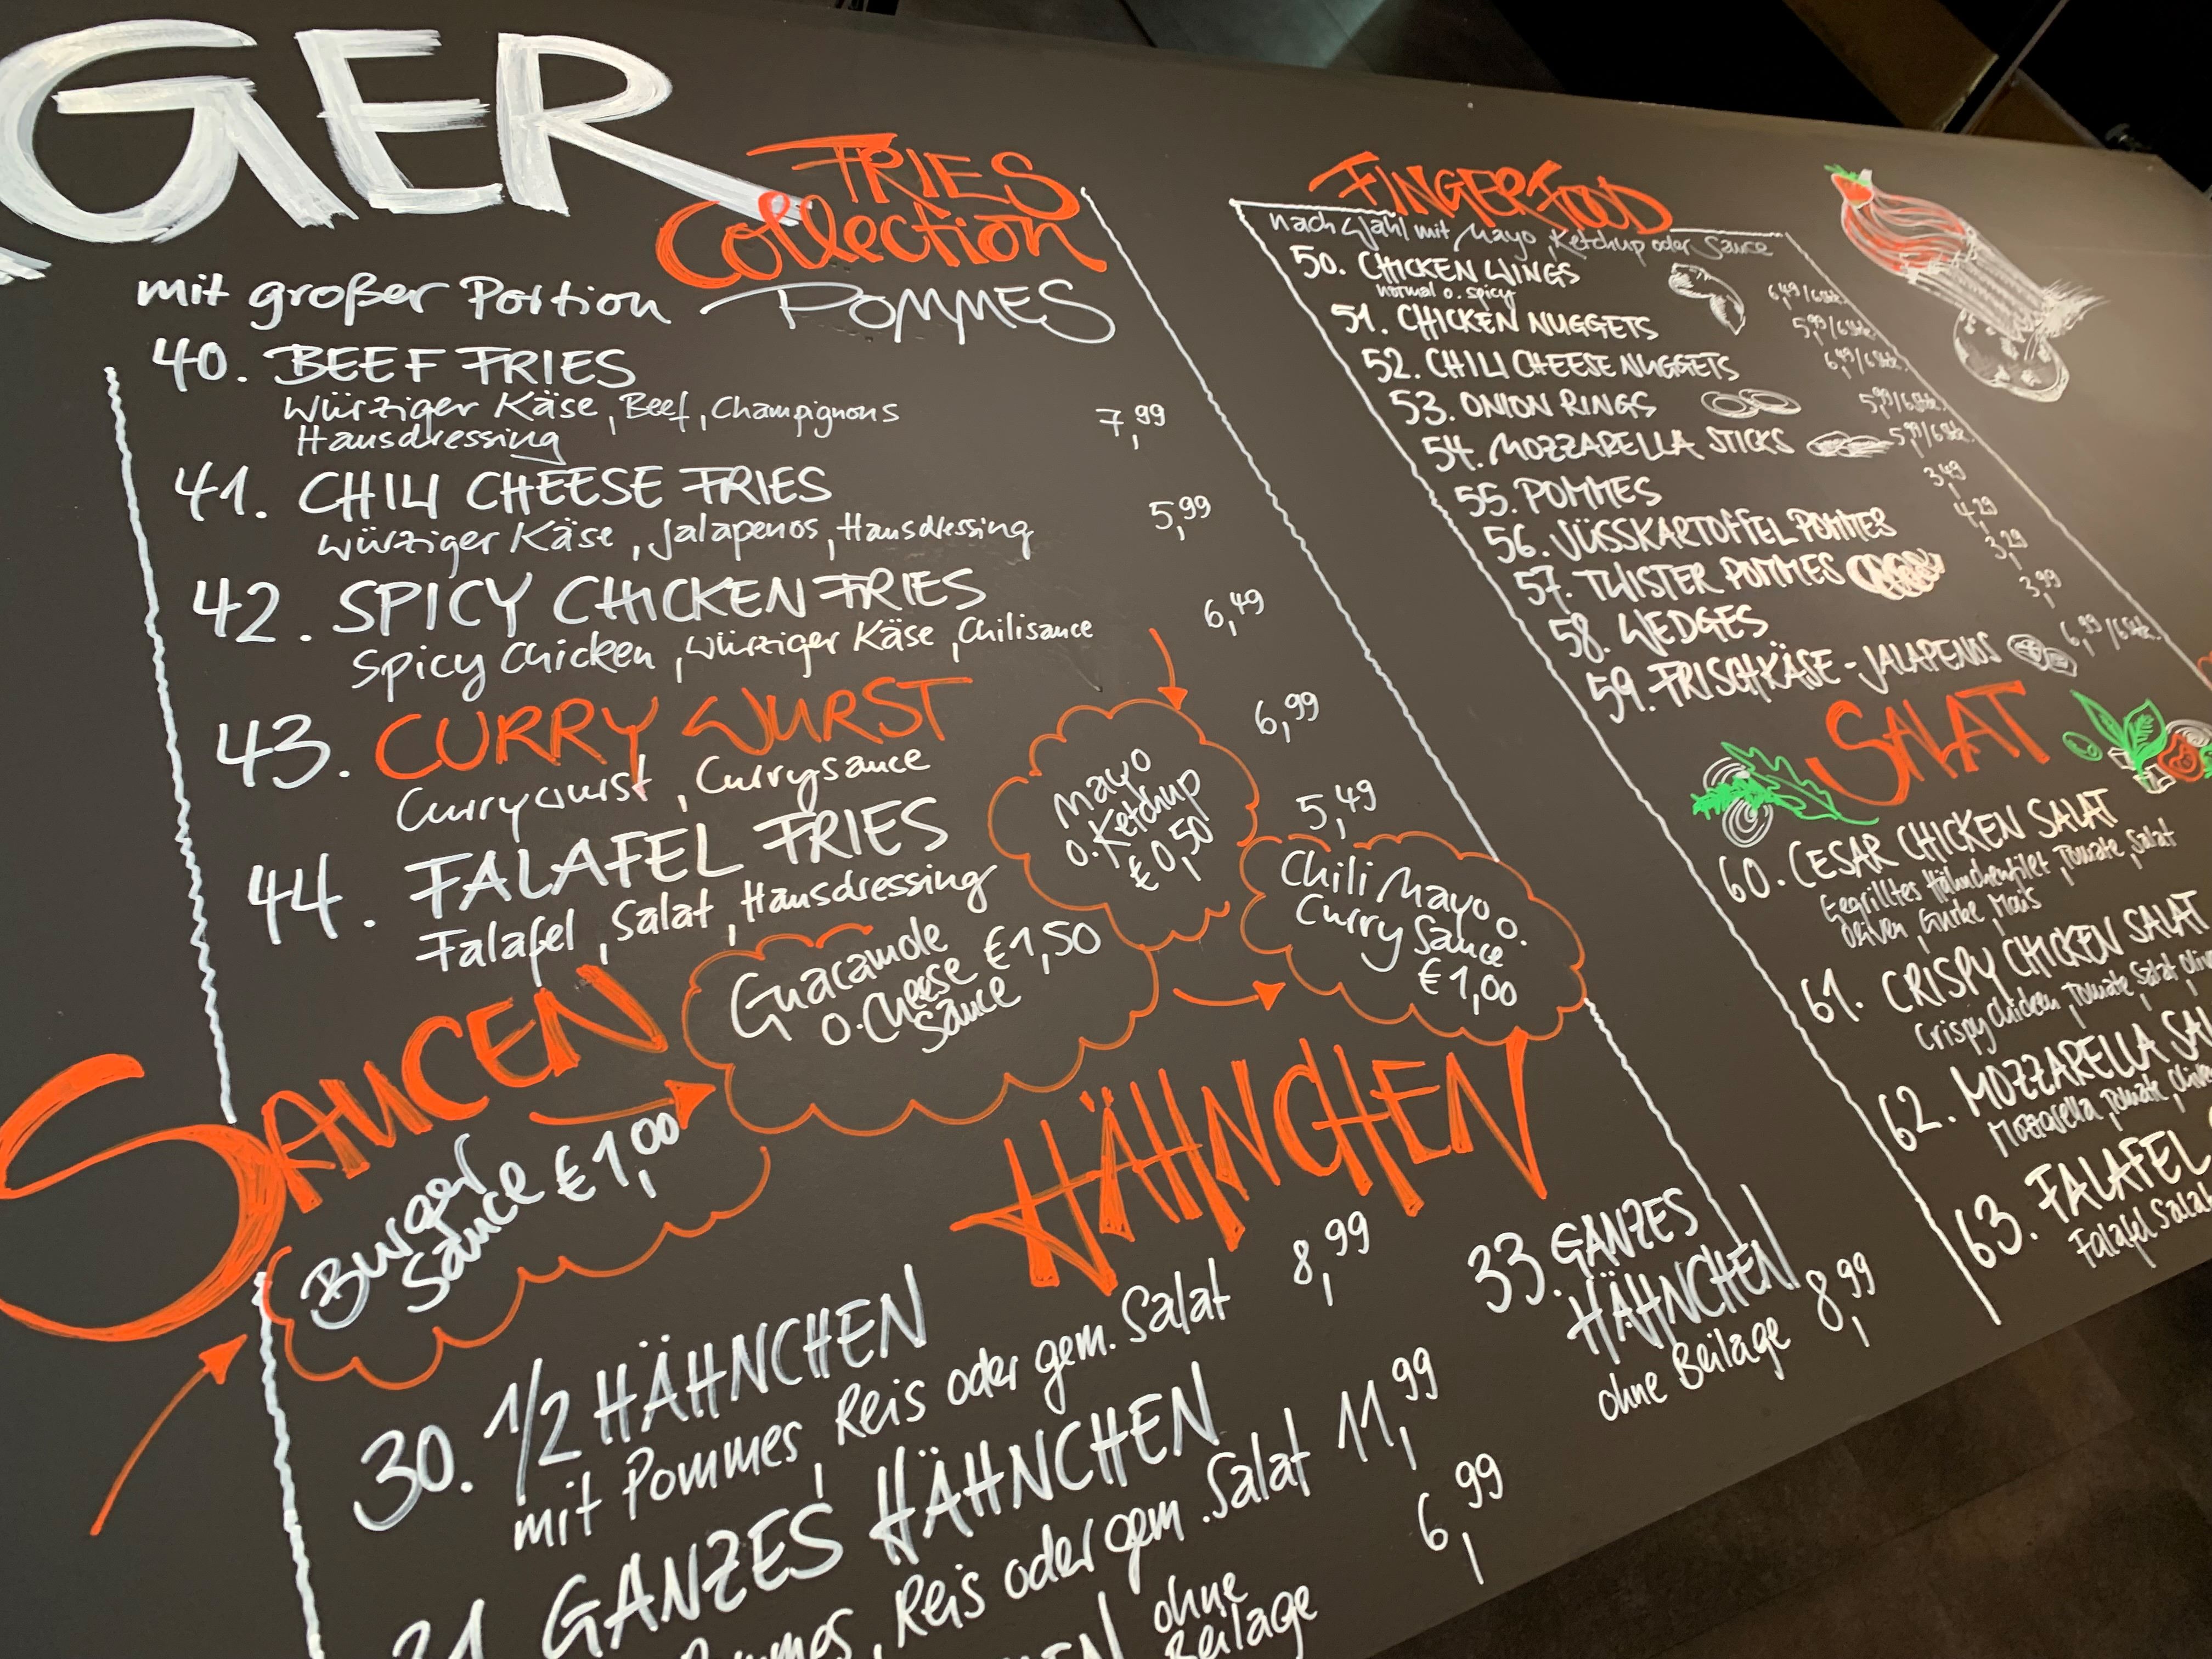 GER
FRIES
Collection
mit großer Portion POMMES
40. BEEF FRIES
Würziger Käse, Beef, Champignons
Hausdressing
7,99
41. CHILI CHEESE FRIES
Würziger Käse, Jalapenos, Hausdressing
5,99
42. SPICY CHICKEN FRIES
Spicy Chicken, Würziger Käse, Chilisauce
6,49
43. CURRY WURST
Currywurst, Currysauce
6,99
44. FALAFEL FRIES
Falafel, Salat, Hausdressing
5,49
SAUCEN
Burger
Sauce €1,00
Guacamole
o. Cheese €1,50
Sauce
Mayo
o. Ketchup
€0,50
Chili Mayo o.
Curry Sauce
€1,00
HÄHNCHEN
30. 1/2 HÄHNCHEN
mit Pommes, Reis oder gem. Salat 8,99
31 GANZES HÄHNCHEN
Pommes, Reis oder gem. Salat 11,99
ohne
Beilage
6,99
33. GANZES
HÄHNCHEN
ohne Beilage 8,99
FINGERFOOD
nach Wahl mit Mayo, Ketchup oder Sauce
50. CHICKEN WINGS
normal o. spicy
6,49/6Stk.
51. CHICKEN NUGGETS 5,99/6Stk.
52. CHILI CHEESE NUGGETS 6,49/6Stk.
53. ONION RINGS 5,99/6Stk.
54. MOZZARELLA STICKS 5,99/6Stk.
55. POMMES 3,49
56. SÜSSKARTOFFEL POMMES 4,29
57. TWISTER POMMES 3,29
58. WEDGES 3,99
59. FRISCHKÄSE-JALAPENOS 6,99/6Stk.
SALAT
60. CESAR CHICKEN SALAT
Gegrilltes Hähnchenfilet, Tomate, Salat
Oliven, Gurke, Mais
61. CRISPY CHICKEN SALAT
Crispy Chicken, Tomate, Salat
62. MOZZARELLA SA
Mozzarella, Tomate,
63. FALAFEL
Falafel Salat